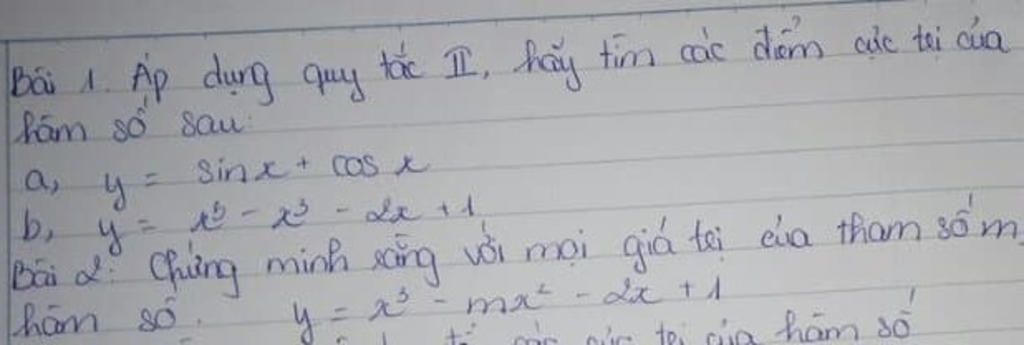 Bài 1. Áp dụng quy tắc II, hãy tìm các điểm cực trị của
hàm số sau:
a, y = sinx + cos x
b, y = x⁵ - x³ - 2x + 1
Bài 2: Chứng minh rằng với mọi giá trị của tham số m,
hàm số. y = x³ - mx² - 2x + 1
các cực trị của hàm số